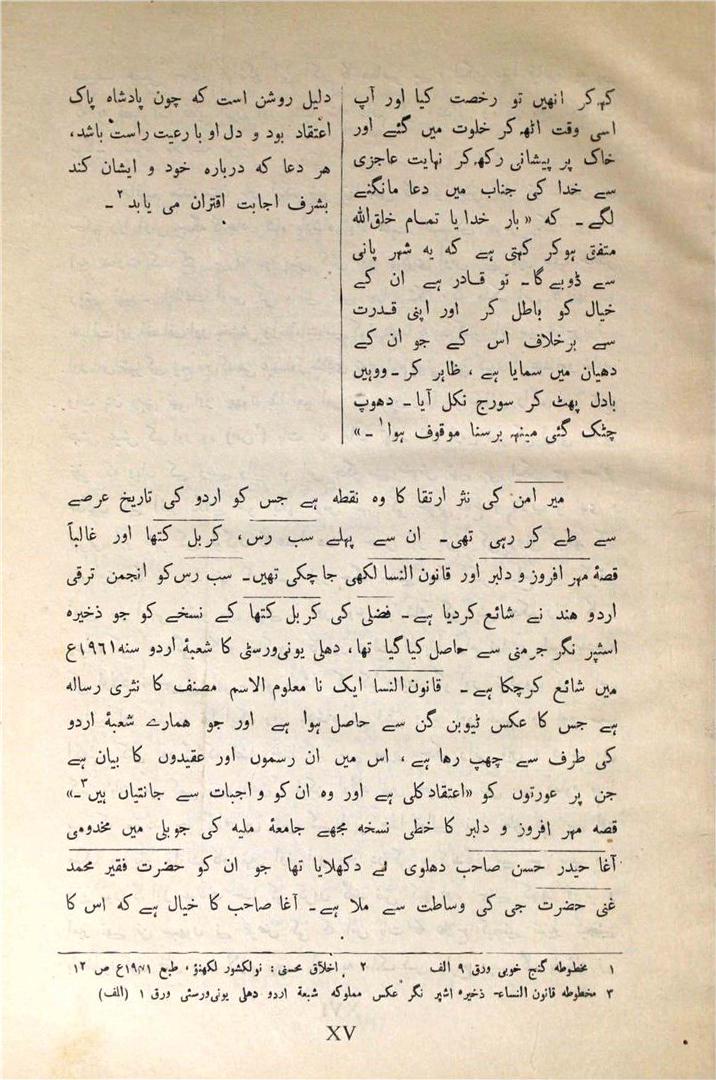 کہہ کر انھیں تو رخصت کیا اور آپ
اسی وقت اٹھ کر خلوت میں گئے اور
خاک پر پیشانی رکھ کر نہایت عاجزی
سے خدا کی جناب میں دعا مانگنے
لگے۔ کہ «بار خدا یا تمام خلق‌اللہ
متفق ہوکر کہتی ہے کہ یہ شہر پانی
سے ڈوبے گا۔ تو قادر ہے ان کے
خیال کو باطل کر اور اپنی قدرت
سے برخلاف اس کے جو ان کے
دھیان میں سمایا ہے ، ظاہر کر۔ ووہیں
بادل پھٹ کر سورج نکل آیا۔ دھوپ
چٹک گئی مینہہ برسنا موقوف ہوا۱۔»
دلیل روشن است کہ چون پادشاہ پاک
اعتقاد بود و دل او با رعیت راست باشد،
ہر دعا کہ دربارہ خود و ایشان کند
بشرف اجابت اقتران می یابد۲۔
میر امن کی نثر ارتقا کا وہ نقطہ ہے جس کو اردو کی تاریخ عرصے
سے طے کر رہی تھی۔ ان سے پہلے سب رس، کربل کتھا اور غالباً
قصۂ مہر افروز و دلبر اور قانون النسا لکھی جاچکی تھیں۔ سب رس کو انجمن ترقی
اردو ھند نے شائع کردیا ہے۔ فضلی کی کربل کتھا کے نسخے کو جو ذخیرہ
اسپر نگر جرمنی سے حاصل کیا گیا تھا، دھلی یونی‌ورسٹی کا شعبۂ اردو سنہ ۱۹۶۱ع
میں شائع کرچکا ہے۔ قانون النسا ایک نا معلوم الاسم مصنف کا نثری رسالہ
ہے جس کا عکس ٹیوبن گن سے حاصل ہوا ہے اور جو ہمارے شعبۂ اردو
کی طرف سے چھپ رہا ہے، اس میں ان رسموں اور عقیدوں کا بیان ہے
جن پر عورتوں کو «اعتقاد کلی ہے اور وہ ان کو واجبات سے جانتیاں ہیں۳۔»
قصہ مہر افروز و دلبر کا خطی نسخہ مجھے جامعۂ ملیہ کی جوبلی میں مخدومی
آغا حیدر حسن صاحب دھلوی نے دکھلایا تھا جو ان کو حضرت فقیر محمد
غنی حضرت جی کی وساطت سے ملا ہے۔ آغا صاحب کا خیال ہے کہ اس کا
۱ مخطوطہ گنج خوبی ورق ۹ الف ۲ اخلاق محسنی: نولکشور لکھنؤ، طبع ع ص ۱۲
۳ مخطوطہ قانون النساء۔ ذخیرہ اشپر نگر عکس مملوکہ شعبۂ اردو دھلی یونی‌ورسٹی ورق ۱ (الف)
XV